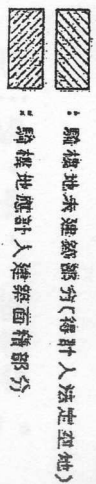 ：騎樓地未建築部分(得計入法定空地)
：騎樓地應計入建築面積部分